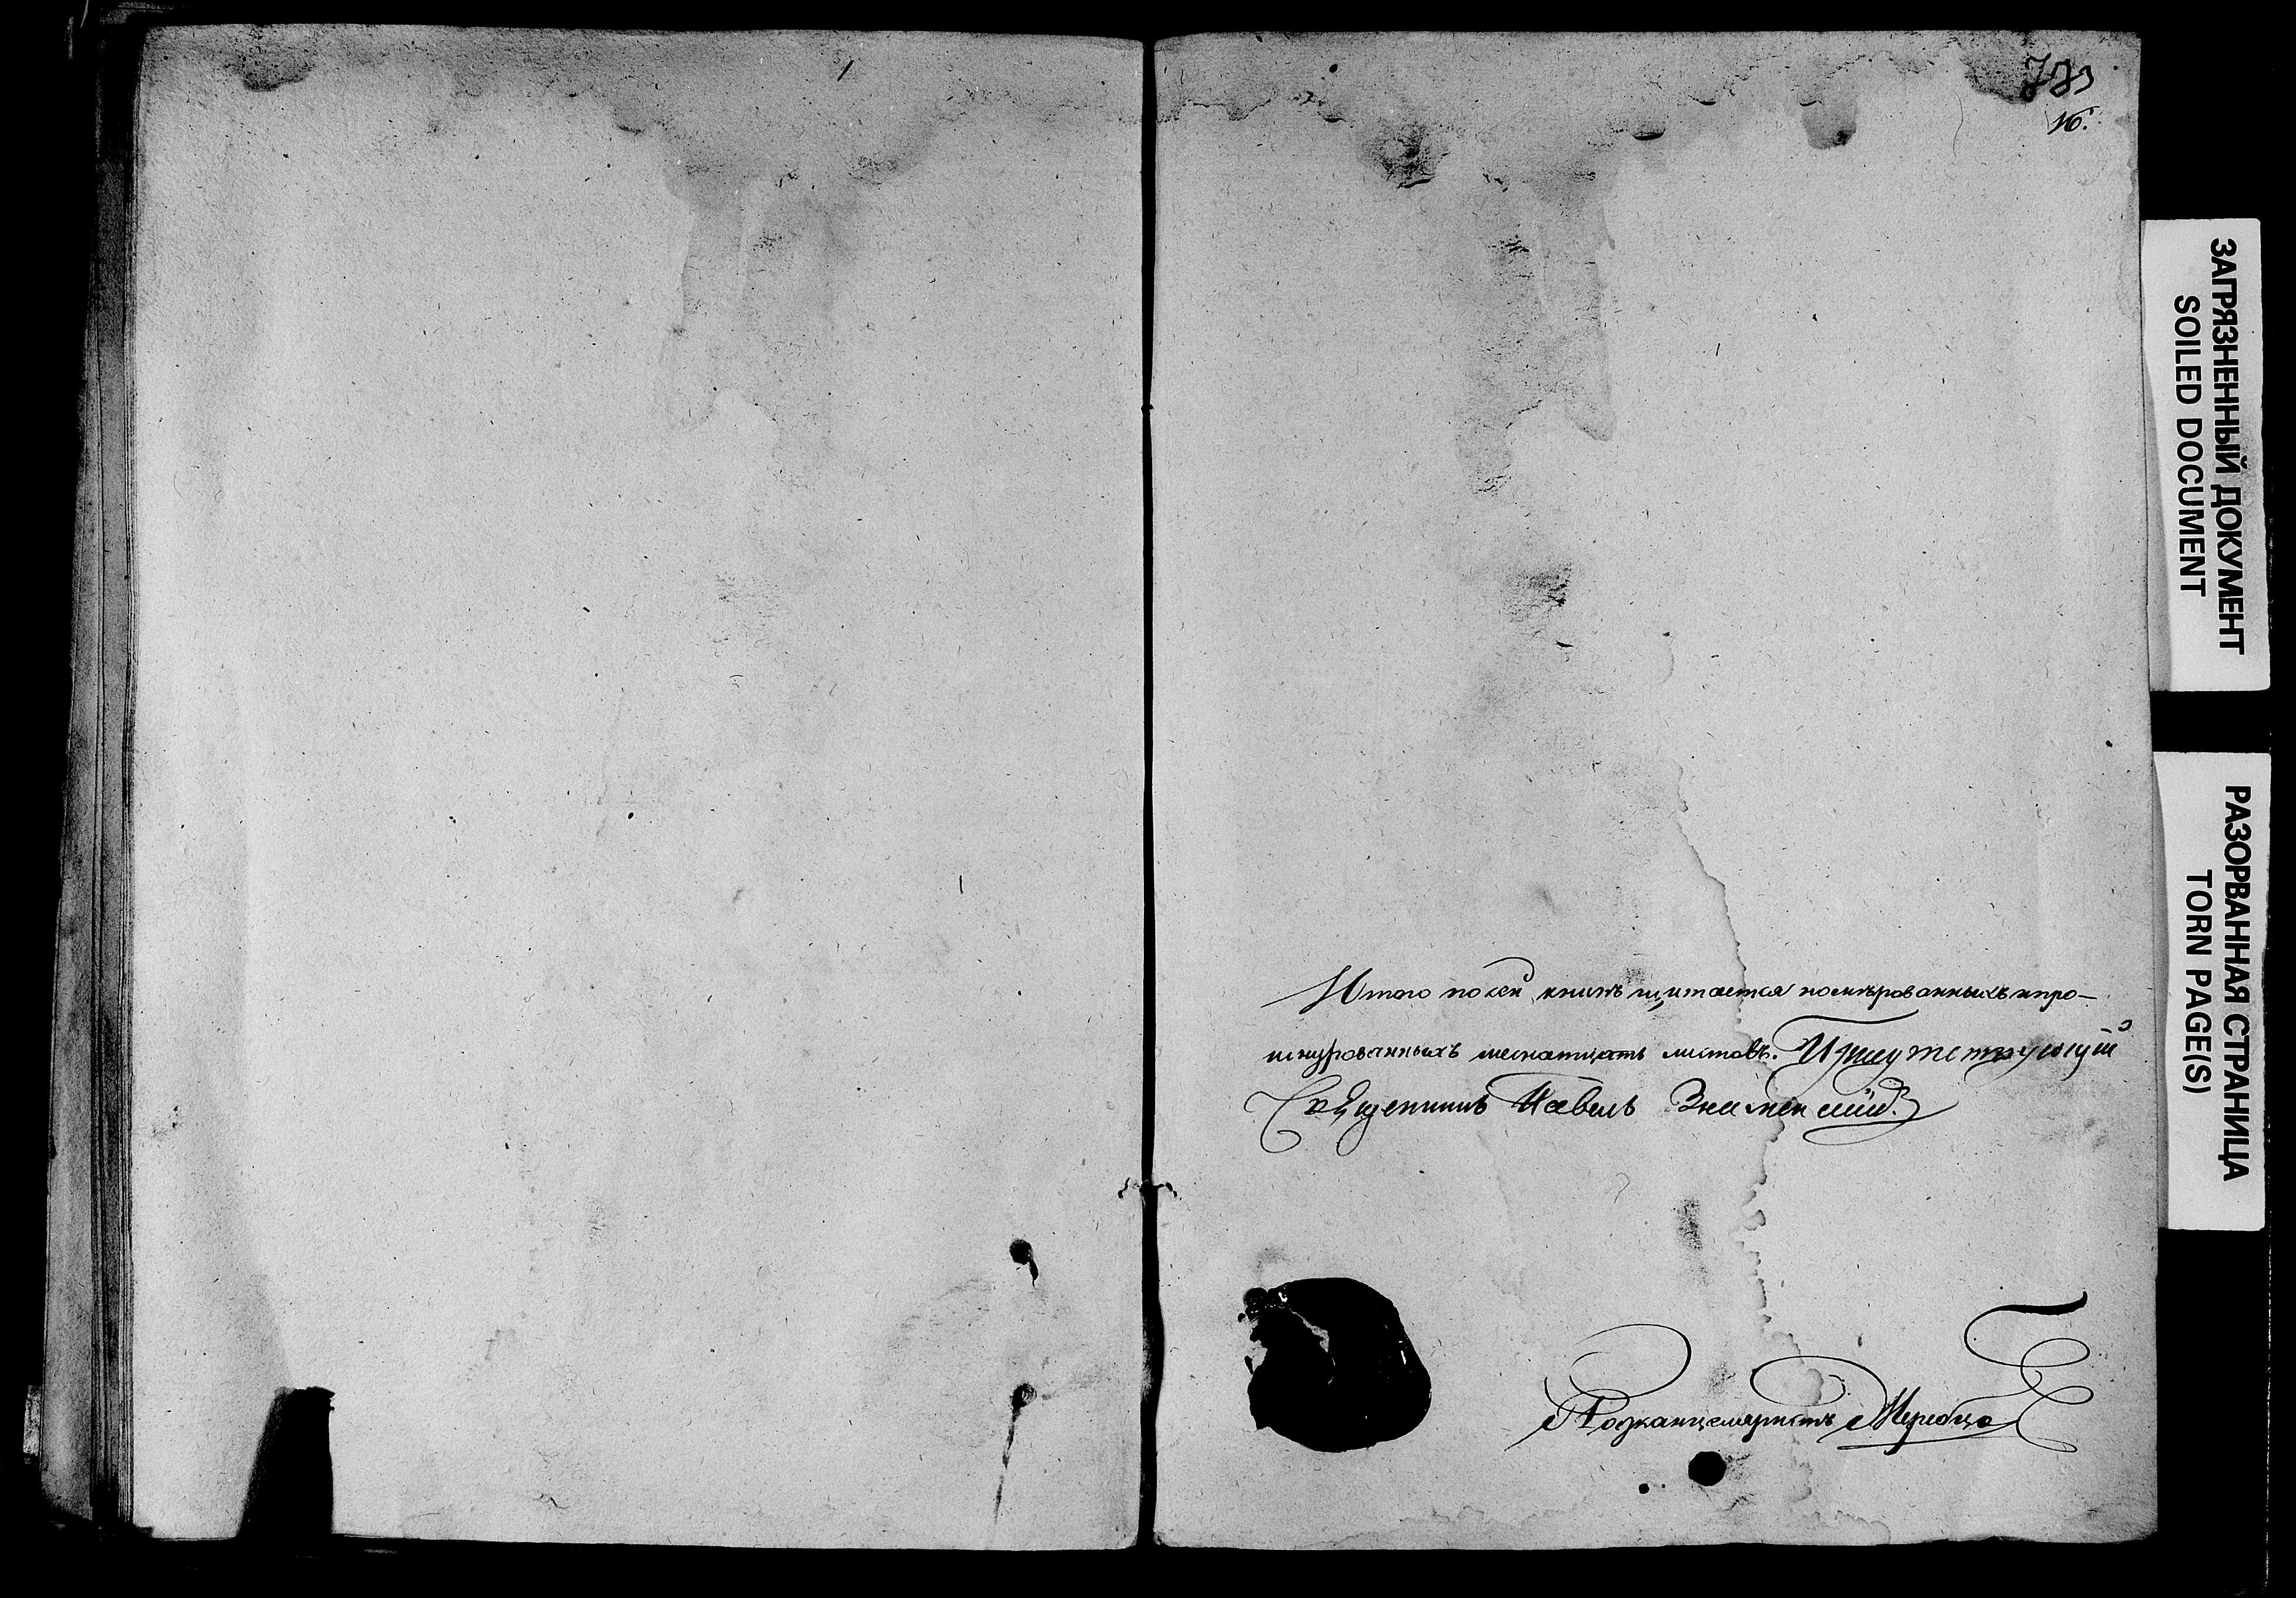 783
16.
Итого по сей книгѣ щитается номѣрованныхъ и про-
шнурованныхъ шеснатцать листовъ. Присутствующій
Священникъ Павелъ Знаменскій.
Подканцеляристъ
ЗАГРЯЗНЕННЫЙ ДОКУМЕНТ
SOILED DOCUMENT
РАЗОРВАННАЯ СТРАНИЦА
TORN PAGE(S)